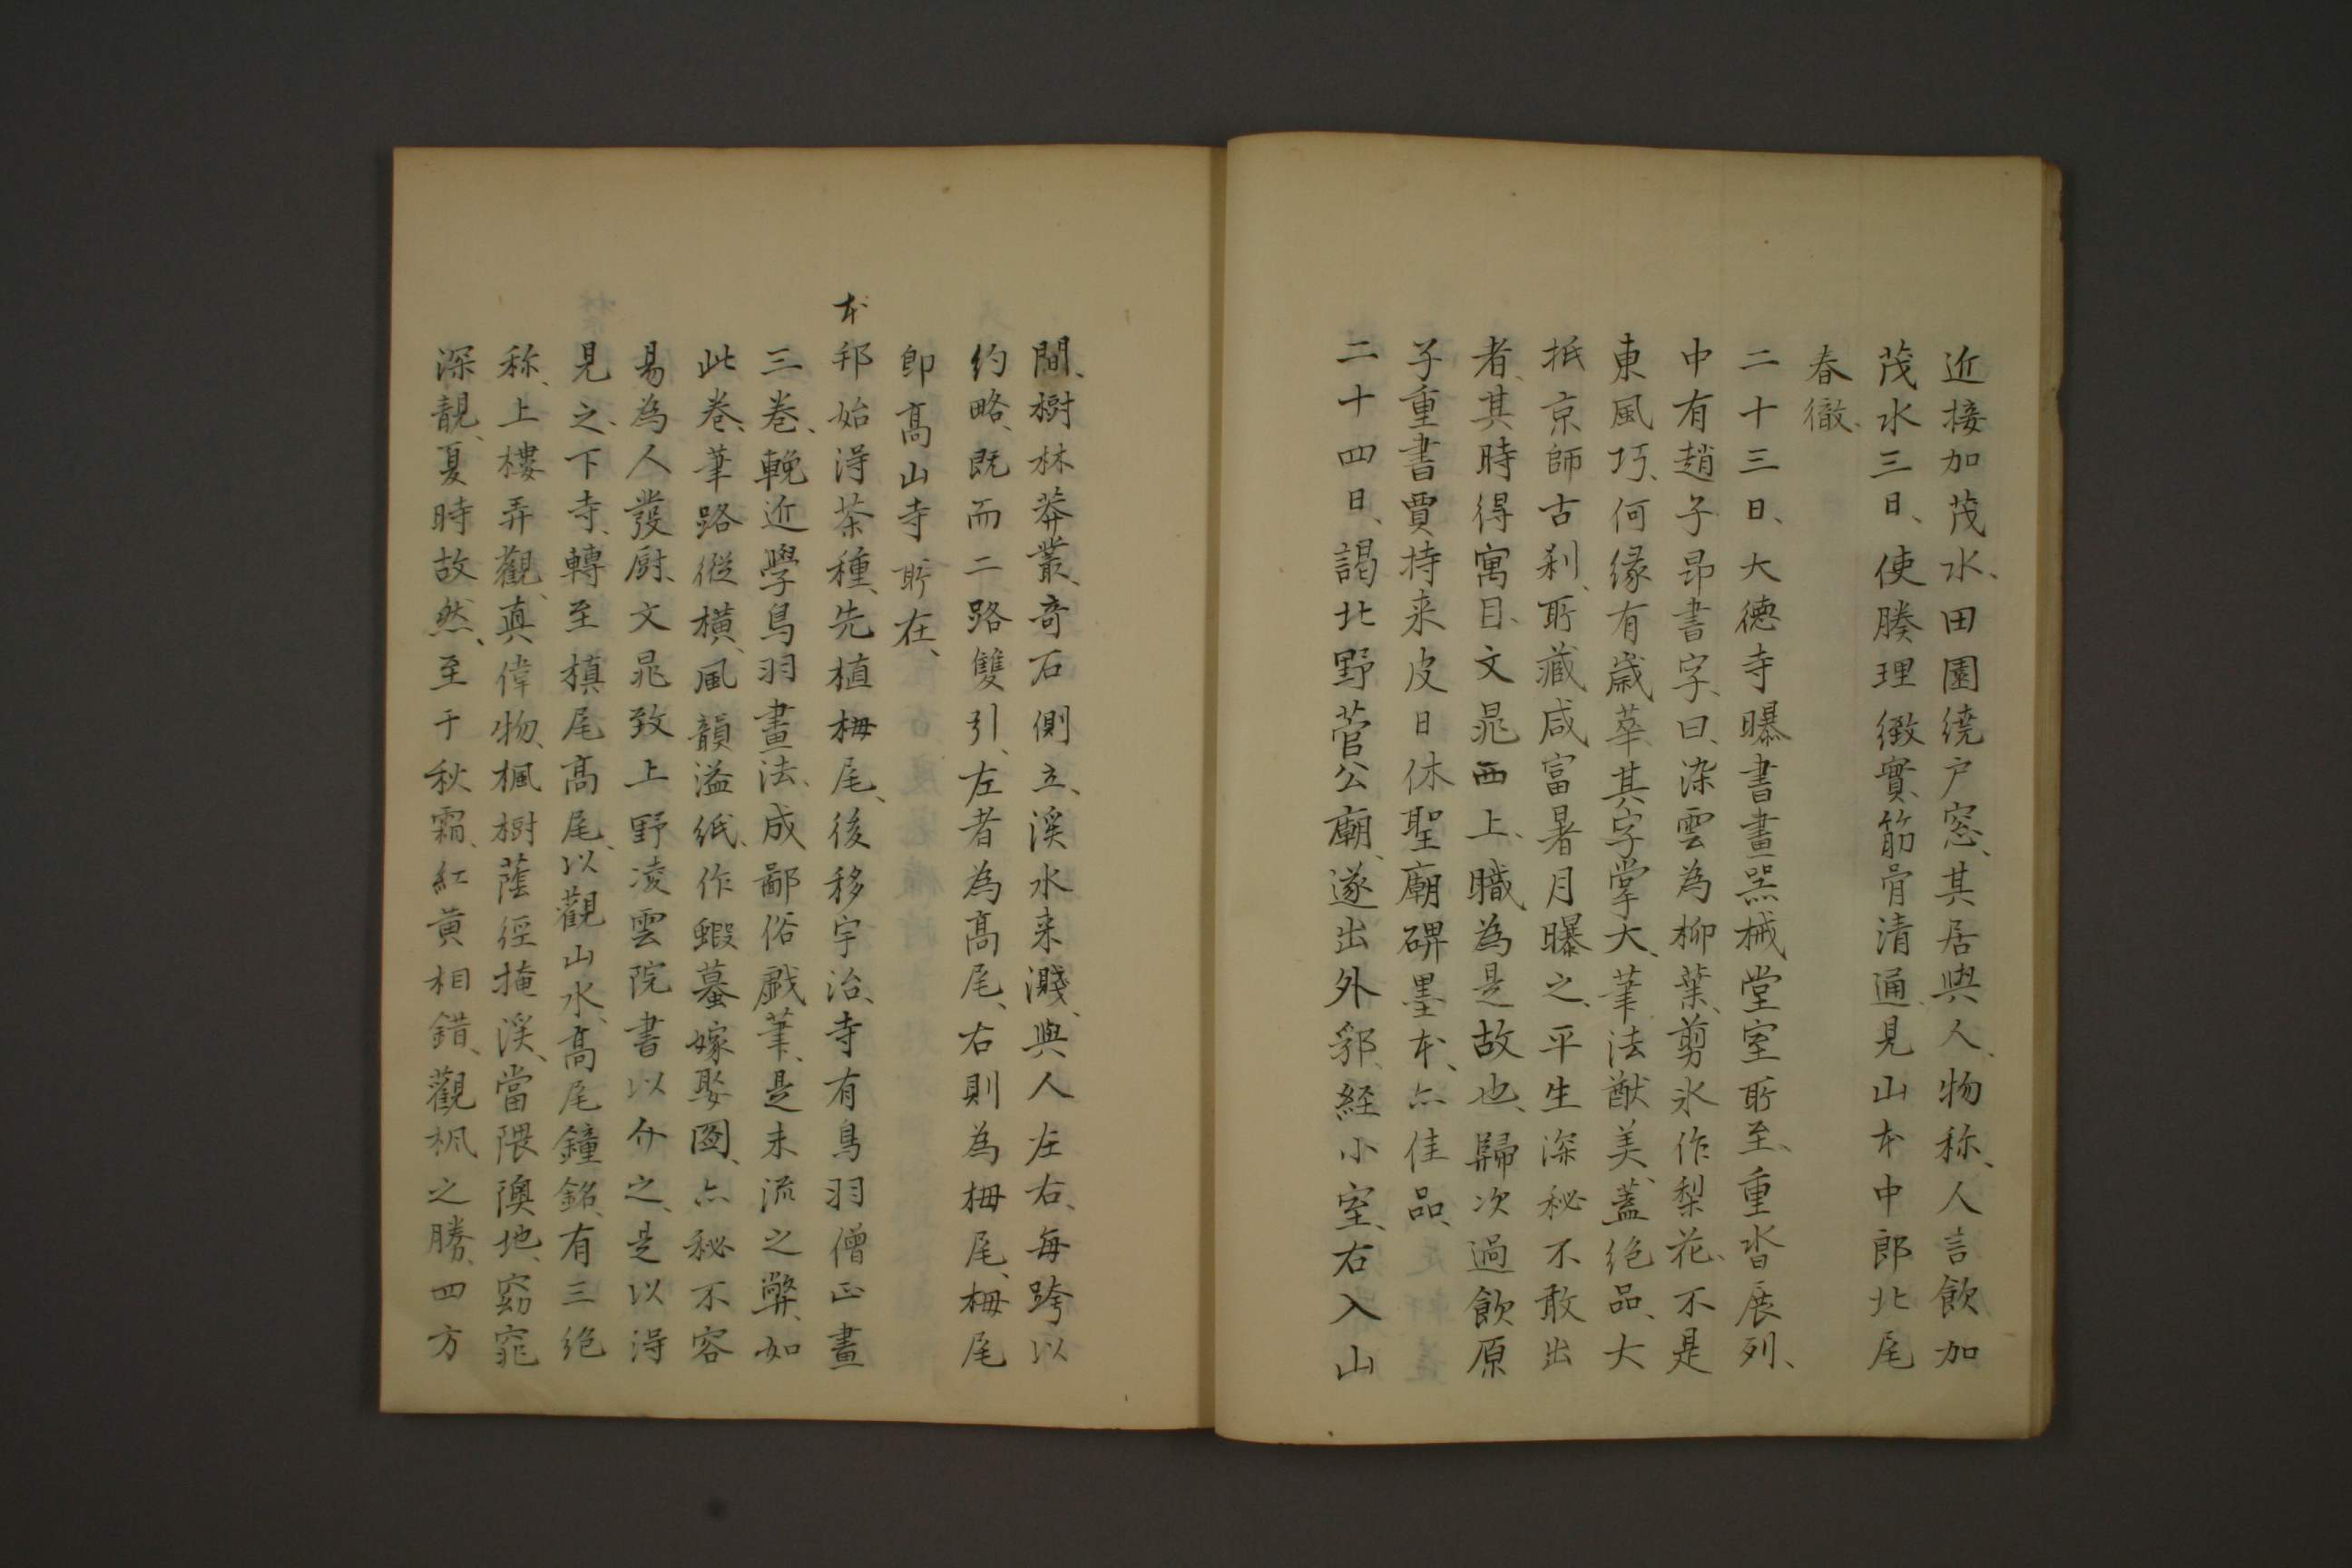 近接加茂水、田園繞戸窓、其居與人、物称、人言飲加
茂水三日、使腠理緻實、筋骨清通、見山本中郎北尾
春徹、
二十三日、大徳寺曝書畫噐械堂室所至、重沓展列、
中有趙子昂書字、曰、染雲為柳葉、剪氷作梨花、不是
東風巧、何縁有歳莘、其字掌大、筆法猷美、蓋絶品、大
抵京師古刹、所藏咸富暑月曝之、平生深秘不敢出
者、其時得寓目、文晁西上、職為是故也、歸次過飲原
子重書賈持来皮日休聖廟碑墨本、亦佳品、
二十四日、謁北野菅公廟、遂出外郛、経小室、右入山
間、樹林莽叢、奇石側立、溪水来濺、與人左右、毎跨以
約略、既而二路雙引、左者為高尾、右則為栂尾、栂尾
即高山寺所在、
本邦始得茶種、先植栂尾、後移宇治、寺有鳥羽僧正畫
三巻、輓近學鳥羽畫法、成鄙俗戯筆、是末流之弊、如
此巻、筆路縦横、風韻溢紙、作蝦蟇嫁娶圖、亦秘不容
易為人發厨、文晁致上野凌雲院書以介之、是以得
見之、下寺、轉至槙尾高尾、以觀山水、高尾鐘銘、有三絶
称、上樓弄觀、真偉物、楓樹蔭徑掩溪、當隈隩地、窈窕
深靚、夏時故然、至于秋霜、紅黄相錯、觀楓之勝、四方